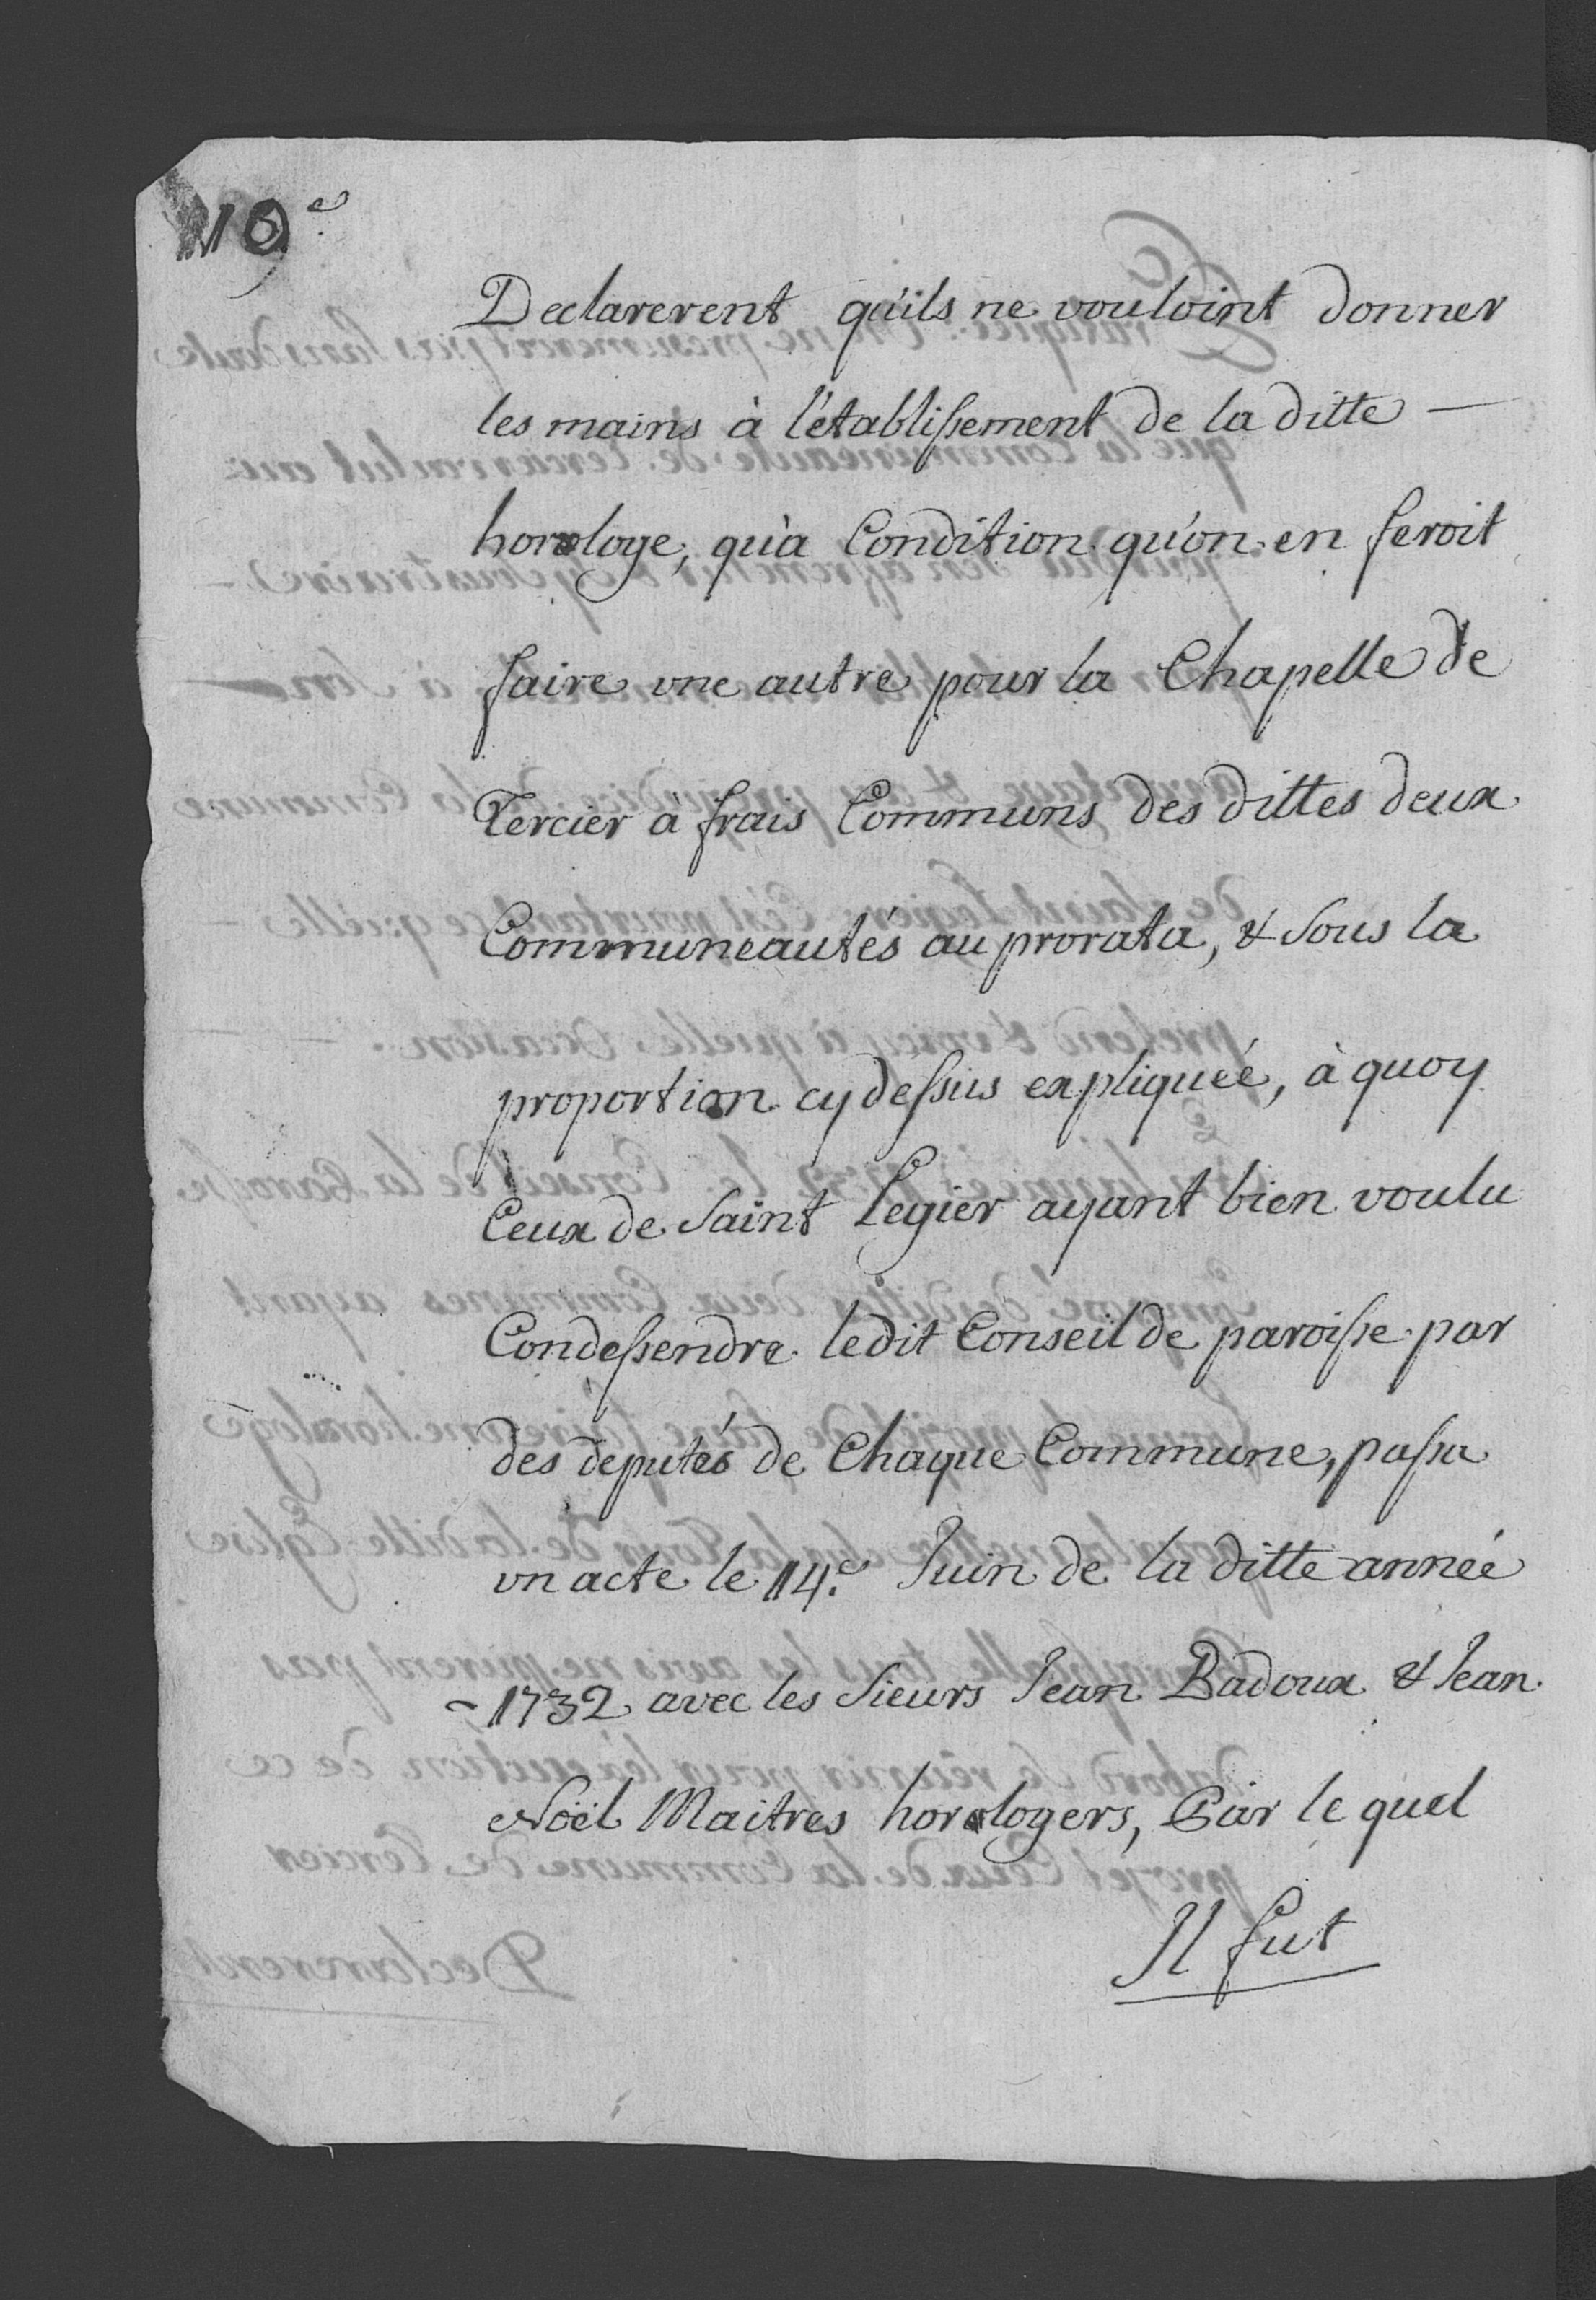 10.e
Declarerent qu'ils ne vouloint donner
les mains à l'établissement de la ditte —
horologe, qu'à Condition qu'on en feroit
faire une autre pour la Chapelle de
Tercier à frais Communs des dittes deux
Communeautés au prorata, & sous la
proportion cy dessus expliquée, à quoy
Ceux de Saint Legier ayant bien voulu
Condessendre ledit Conseil de paroisse par
des deputés de Chaque Commune, passa
un acte le 14.e Juin de la ditte année
~ 1732 avec les Sieurs Jean Badoux & Jean
Noël Maitres horologers, Par le quel
Il fut